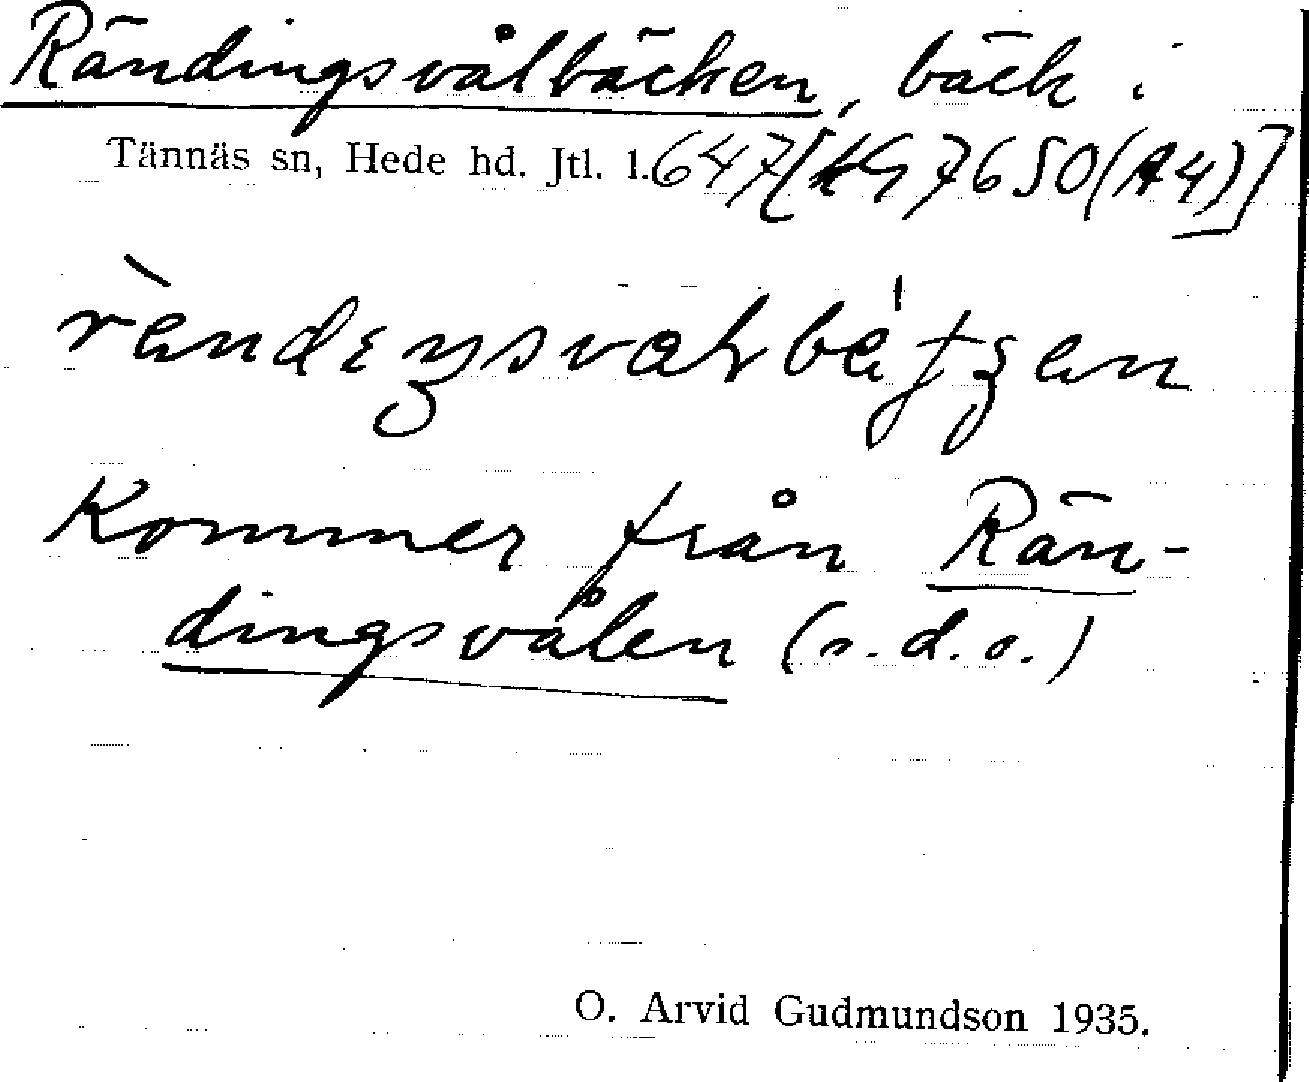 Rändingsvålbäcken, bäck i
Tännäs sn, Hede hd. Jtl. l. 647 [497650(A4)]
Kommer från Rän-
dingsvålen (s.d.o.)
O. Arvid Gudmundson 1935.